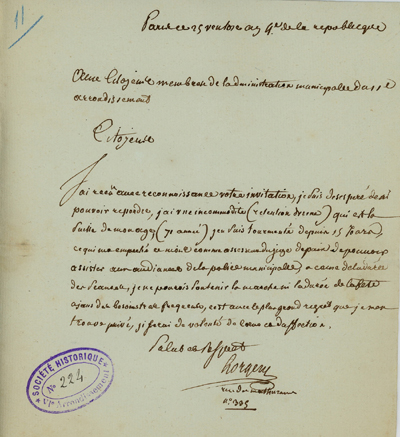 11
Paris ce 25 ventose an 4e de la republique
Aux Citoyens membres de l'administration municipalle du 11e
arrondissement
Citoyens
J'ai reçu avec reconnaissance votre invitation, je suis desesperé de ne
pouvoir repondre, j'ai une incommodité (retention d'urine) qui est la
suitte de mon age, (71 années) je suis tourmenté depuis 15 jours,
ce qui m'a empeché a moi comme juge de paix de pouvoir
assister aux audiances de la police municipalle, a cause de la durée
des seances, je ne pourois soutenir la marche ni la durée de la fete
ayant des besoins si frequents, c'est avec le plus grand regret que je m'en
trouve privé, je serai de volonté de coeur et d'affection.
Salut et Respect
Rorgeru
rue
n° 395
SOCIÉTÉ HISTORIQUE
No 224
VIe Arrondissement